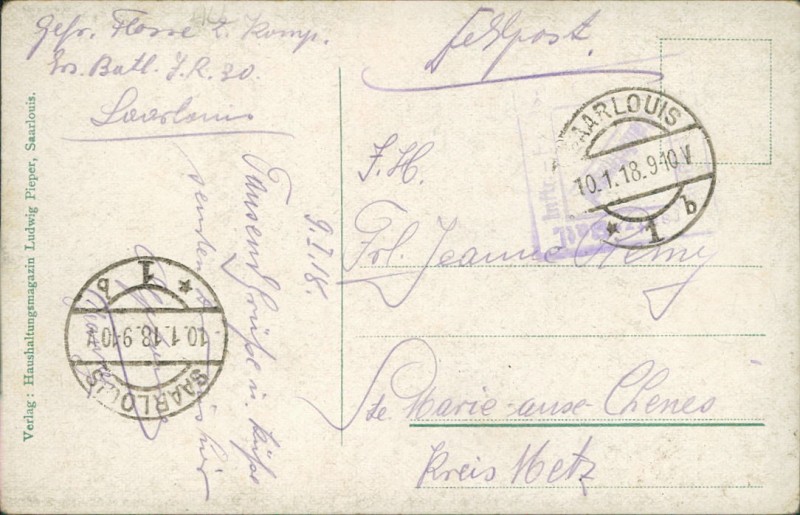 Gefr. Flosse 2. Komp.
Ers. Batl. I.R. 30.
Saarlouis
Feldpost.
9.I.18.
Tausend Grüße u. Küsse
senden
Verlag: Haushaltungsmagazin Ludwig Pieper, Saarlouis.
SAARLOUIS
10.1.18.9-10V
* 1 b
SAARLOUIS
10.1.18.9-10V
* 1 b
F.H.
Frl. Jeanne Remy
Ste Marie-aux-Chenes
Kreis Metz